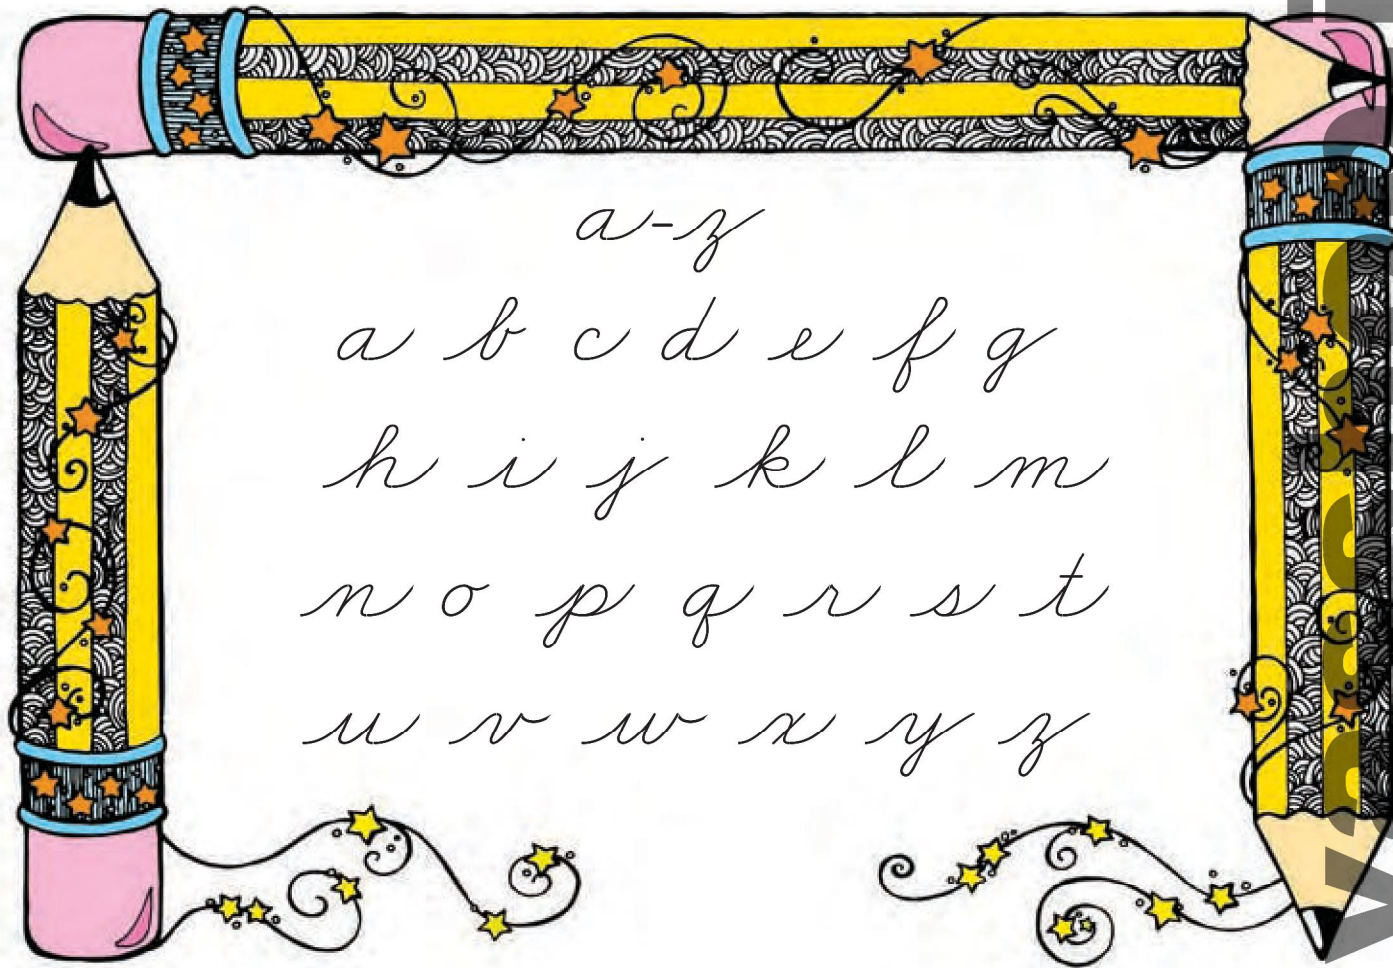 a-z
a b c d e f g
h i j k l m
n o p q r s t
u v w x y z